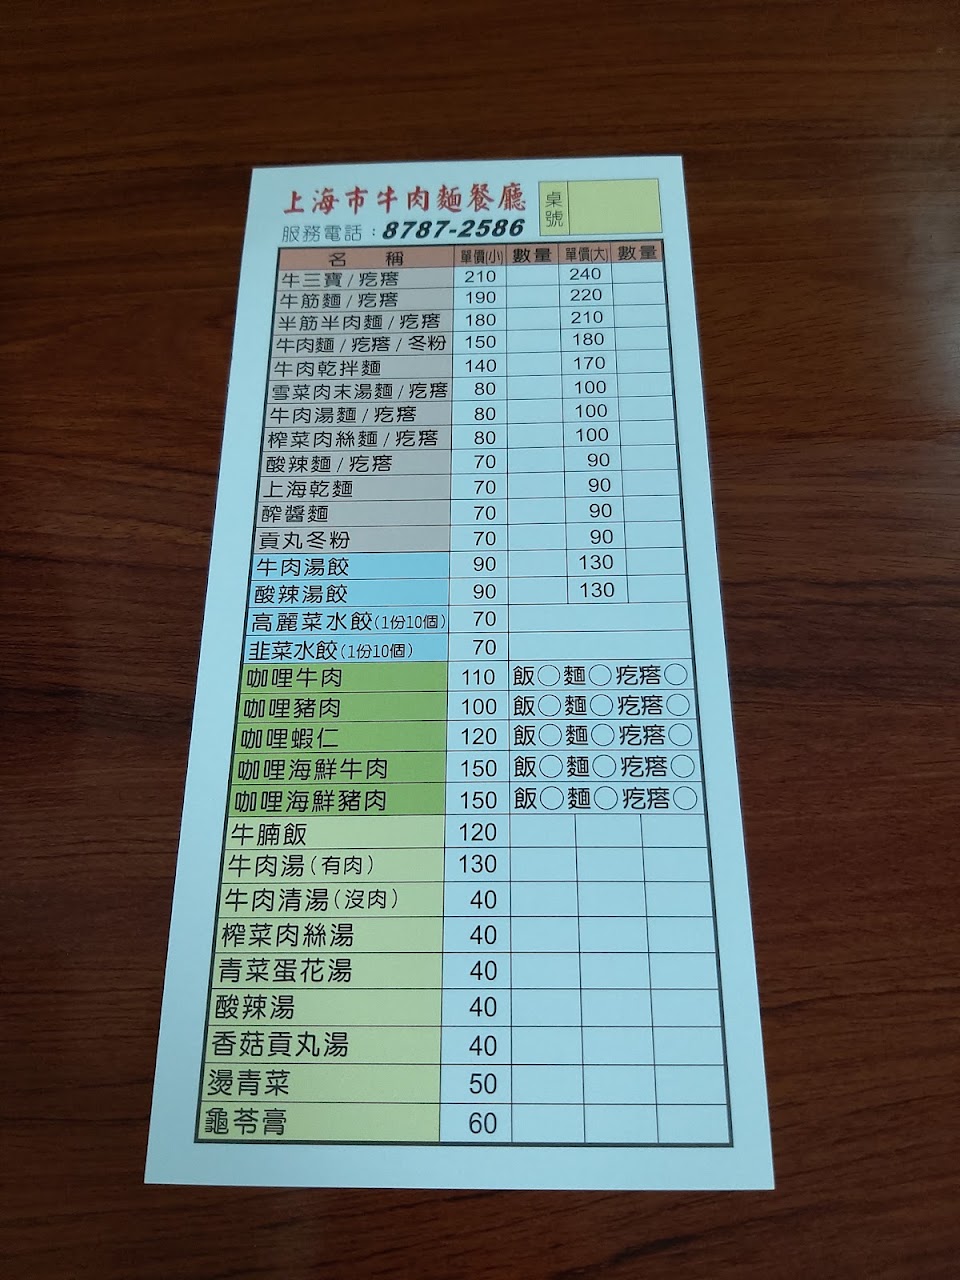 上海市牛肉麵餐廳
桌號
服務電話：8787-2586
名 稱 單價(小) 數量 單價(大) 數量
牛三寶/疙瘩 210 240
牛筋麵/疙瘩 190 220
半筋半肉麵/疙瘩 180 210
牛肉麵/疙瘩/冬粉 150 180
牛肉乾拌麵 140 170
雪菜肉末湯麵/疙瘩 80 100
牛肉湯麵/疙瘩 80 100
榨菜肉絲麵/疙瘩 80 100
酸辣麵/疙瘩 70 90
上海乾麵 70 90
醡醬麵 70 90
貢丸冬粉 70 90
牛肉湯餃 90 130
酸辣湯餃 90 130
高麗菜水餃(1份10個) 70
韭菜水餃(1份10個) 70
咖哩牛肉 110 飯○麵○疙瘩○
咖哩豬肉 100 飯○麵○疙瘩○
咖哩蝦仁 120 飯○麵○疙瘩○
咖哩海鮮牛肉 150 飯○麵○疙瘩○
咖哩海鮮豬肉 150 飯○麵○疙瘩○
牛腩飯 120
牛肉湯(有肉) 130
牛肉清湯(沒肉) 40
榨菜肉絲湯 40
青菜蛋花湯 40
酸辣湯 40
香菇貢丸湯 40
燙青菜 50
龜苓膏 60